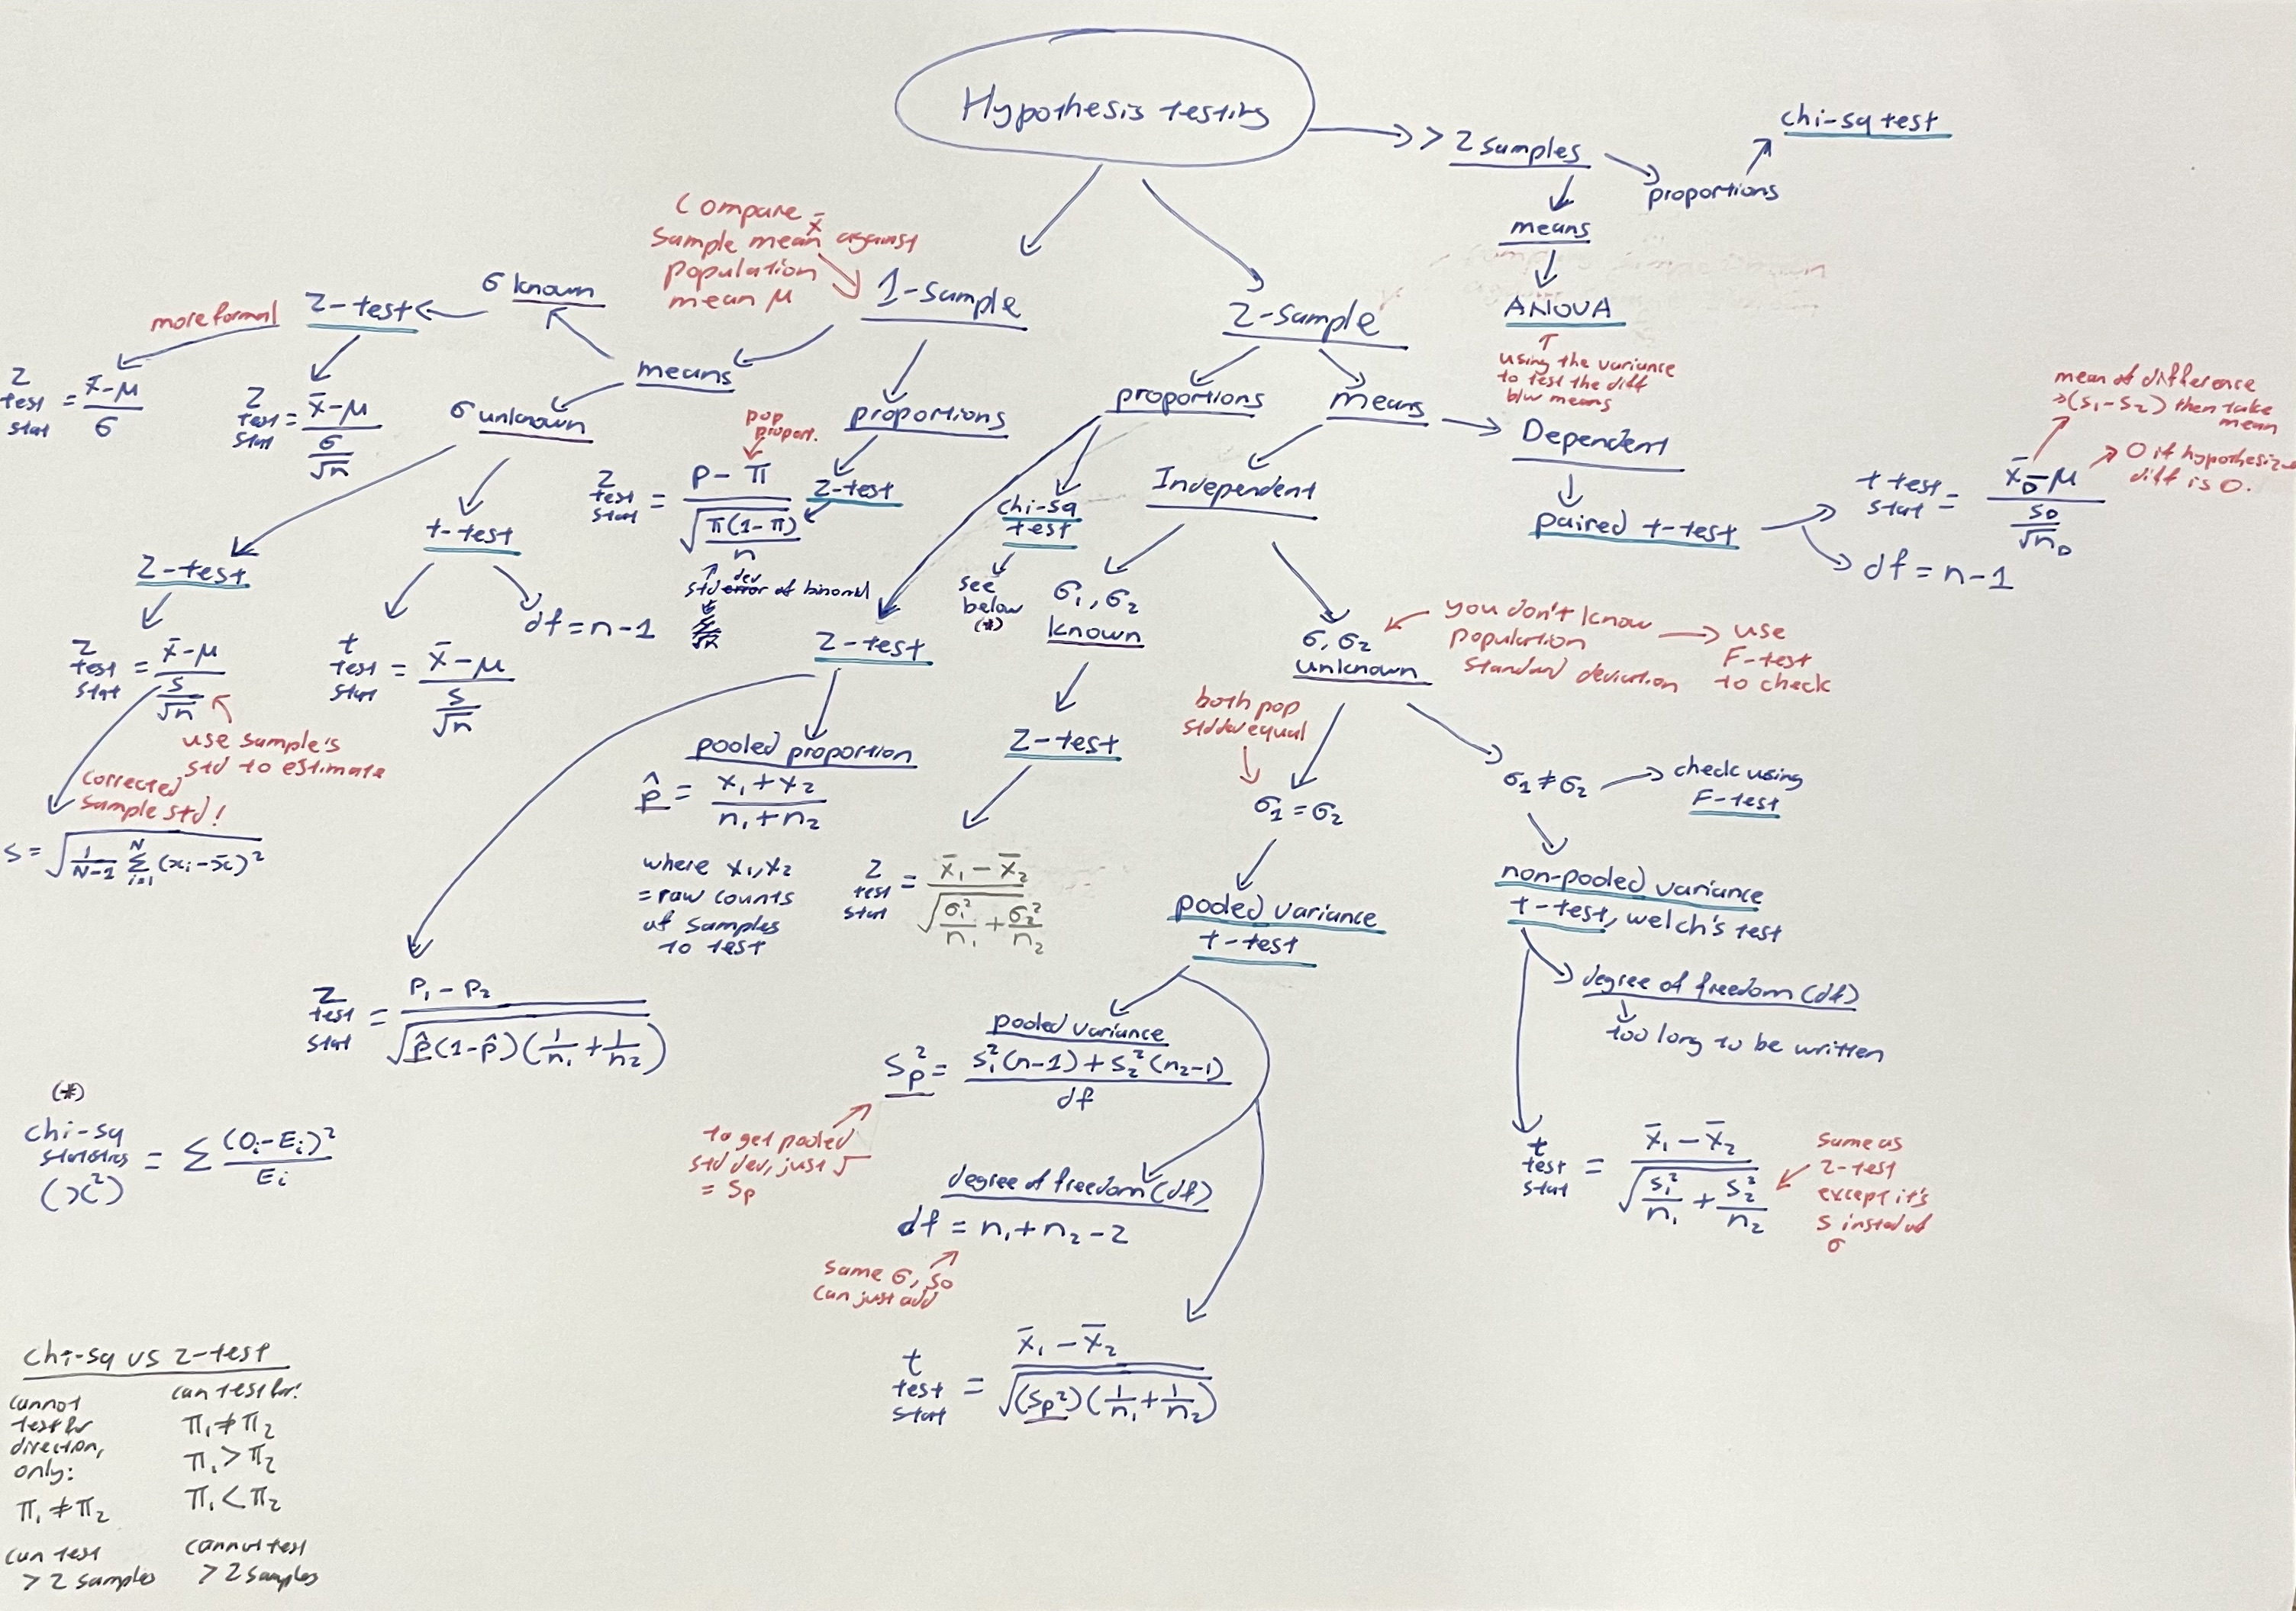 Hypothesis testing
> 2 samples
proportions
chi-sq test
means
ANOVA
using the variance
to test the diff
b/w means
Compare
sample mean x̄ against
population
mean μ
1-sample
means
σ known
z-test
more formal
z test stat = x̄-μ / σ
z test stat = x̄-μ / σ/√n
σ unknown
z-test
z test stat = x̄-μ / s/√n
use sample's
std to estimate
corrected
sample std!
s = √(1/N-1 Σ i=1 N (xi-x̄)²)
t-test
df = n-1
t test stat = x̄-μ / s/√n
proportions
z-test
pop
proport.
z test stat = p-π / √(π(1-π)/n)
dev
std error of binomial
2-sample
proportions
chi-sq
test
see
below
(*)
z-test
pooled proportion
p̂ = x₁+x₂ / n₁+n₂
where x₁,x₂
= raw counts
of samples
to test
z test stat = p₁-p₂ / √(p̂(1-p̂)(1/n₁+1/n₂))
means
Independent
σ₁,σ₂
known
z-test
z test stat = x̄₁-x̄₂ / √(σ₁²/n₁+σ₂²/n₂)
σ,σ₂
unknown
you don't know
population
standard deviation
use
F-test
to check
both pop
std dev equal
σ₁=σ₂
pooled variance
t-test
pooled variance
Sp² = s₁²(n-1)+s₂²(n₂-1) / df
to get pooled
std dev, just √
= Sp
degree of freedom (df)
df = n₁+n₂-2
same σ, so
can just add
t test stat = x̄₁-x̄₂ / √((Sp²)(1/n₁+1/n₂))
σ₁≠σ₂
check using
F-test
non-pooled variance
t-test, welch's test
degree of freedom (df)
too long to be written
t test stat = x̄₁-x̄₂ / √(s₁²/n₁+s₂²/n₂)
same as
z-test
except it's
s instead of
σ
Dependent
paired t-test
t test stat = x̄D-μ / sD/√nD
df = n-1
mean of difference
→(s₁-s₂) then take
mean
0 if hypothesize
diff is 0.
(*)
chi-sq
statistics
(x²)
= Σ (Oi-Ei)² / Ei
chi-sq vs z-test
cannot
test for
direction,
only:
π₁≠π₂
can test
> 2 samples
can test for:
π₁≠π₂
π₁>π₂
π₁<π₂
cannot test
> 2 samples